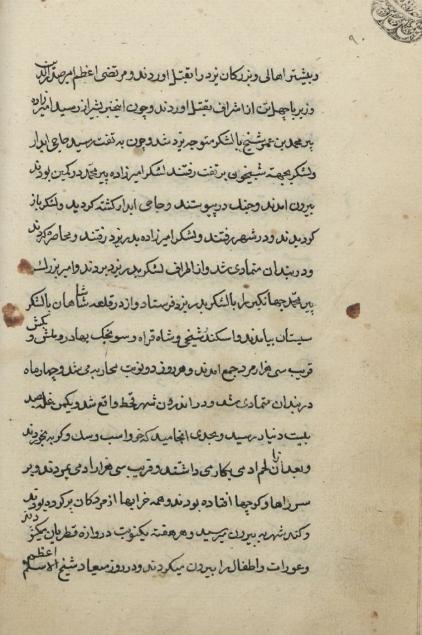 ۹۰
و بیشتر اهالی و بزرکان یزد را بقتل اوردند و مرتضی اعظم امیر صدرالدین
وزیر با چهل تن از اشراف بقتل اوردند و چون این خبر بشیراز رسید امیرزاده
پیر محمد بن عمر شیخ با لشکر متوجه یزد شد و چون به تفت رسید حاجی ابدار
و لشکر بجهة شبیخون بر تفت رفتند لشکر امیرزاده پیر محمد در کمین بودند
بیرون امدند و جنک در پیوستند و حاجی ابدار کشته کردید و لشکر باز
کردیدند و در شهر رفتند و لشکر امیرزاده بدر یزد رفتند و محاصره کردند
و در بندان متمادی شد و از اطراف لشکر بدر یزد بردند و امیر بزرک
پیر محمد جهانکیر را با لشکر بدر یزد فرستاد و از در قلعه شاه شاهان با لشکر
سیستان بیامدند و اسکندر شیخی و شاه قراه و سونجک بهادر و
قریب سی هزار مرد جمع امدند و هر روز دو نوبت محاربه می شد و چهار ماه
در بندان متمادی شد و در اندرون شهر قحط واقع شد و یکمن غله
بیست دینار رسید و بحدی انجامید که خر و اسب و سک و کربه بخوردند
و بعد از آن لحم ادمی بکار می داشتند و قریب سی هزار ادمی بمردند و بر
سر راهها و کوچها افتاده بودند و همه خرابها از مردکان پر کرده بودند
و کند شهر به بیرون میرسید و هر هفته یکنوبت دروازه قطریان
و عورات و اطفال را بیرون میکردند و در روز میعاد شیخ الاسلام اعظم